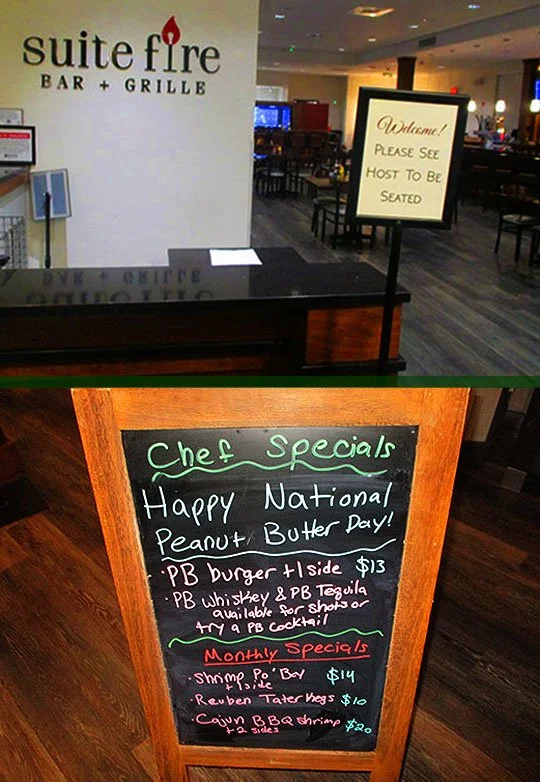 suite fire
BAR + GRILLE
Welcome!
PLEASE SEE
HOST TO BE
SEATED
BAR + GRILLE
Chef Specials
Happy National
Peanut Butter Day!
· PB burger + 1 side $13
· PB whiskey & PB Tequila
available for shots or
try a PB cocktail
Monthly Specials
· Shrimp Po' Boy $14
+ 1 side
· Reuben Tater Kegs $10
· Cajun BBQ shrimp $20
+ 2 sides